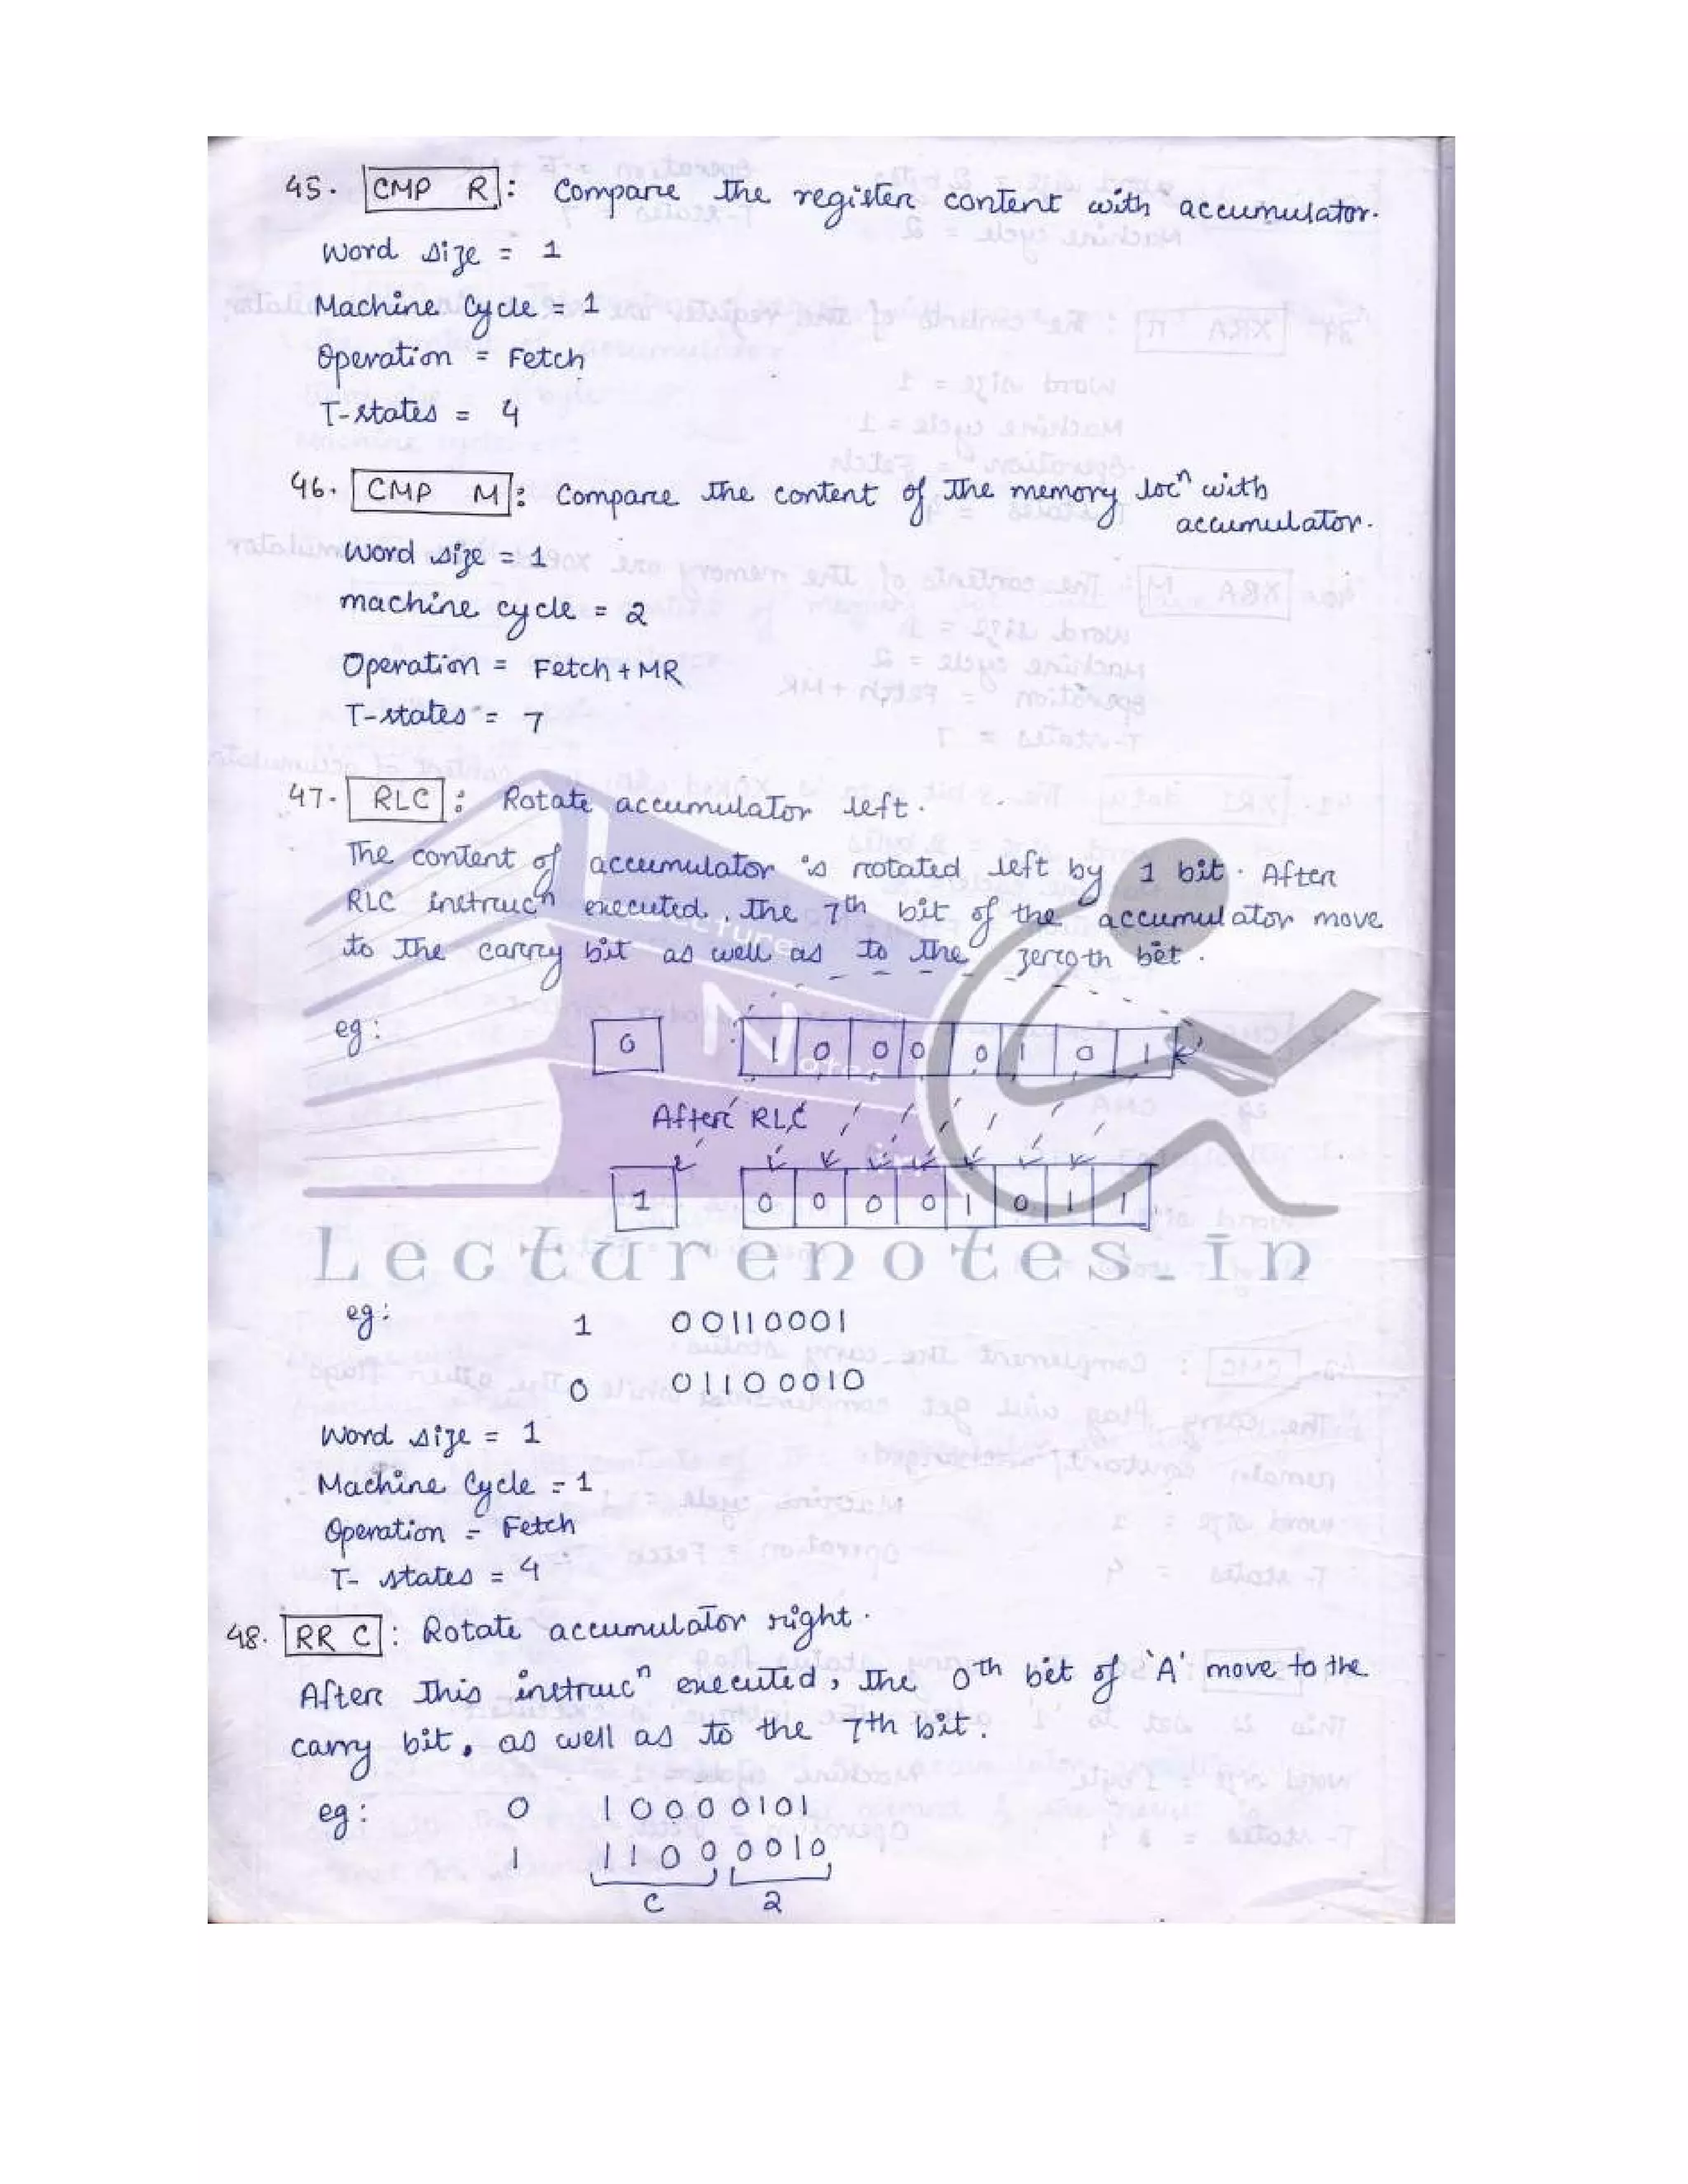 45. CMP R : Compare the register content with accumulator.
Word size = 1
Machine Cycle = 1
Operation = Fetch
T-states = 4
46. CMP M : Compare the content of the memory locn with
accumulator.
Word size = 1
machine cycle = 2
Operation = Fetch + MR
T-states = 7
47. RLC : Rotate accumulator left.
The content of accumulator is rotated left by 1 bit. After
RLC instrucn executed, the 7th bit of the accumulator move
to the carry bit as well as to the zeroth bit.
eg: 0 1 0 0 0 0 1 0 1
After RLC
1 0 0 0 0 1 0 1 1
Lecturenotes.in
eg: 1 00110001
0 01100010
Word size = 1
Machine Cycle = 1
Operation = Fetch
T- states = 4
48. RR C : Rotate accumulator right.
After this instrucn executed, the 0th bit of 'A' move to the
carry bit, as well as to the 7th bit.
eg: 0 10000101
1 11000010
C 2